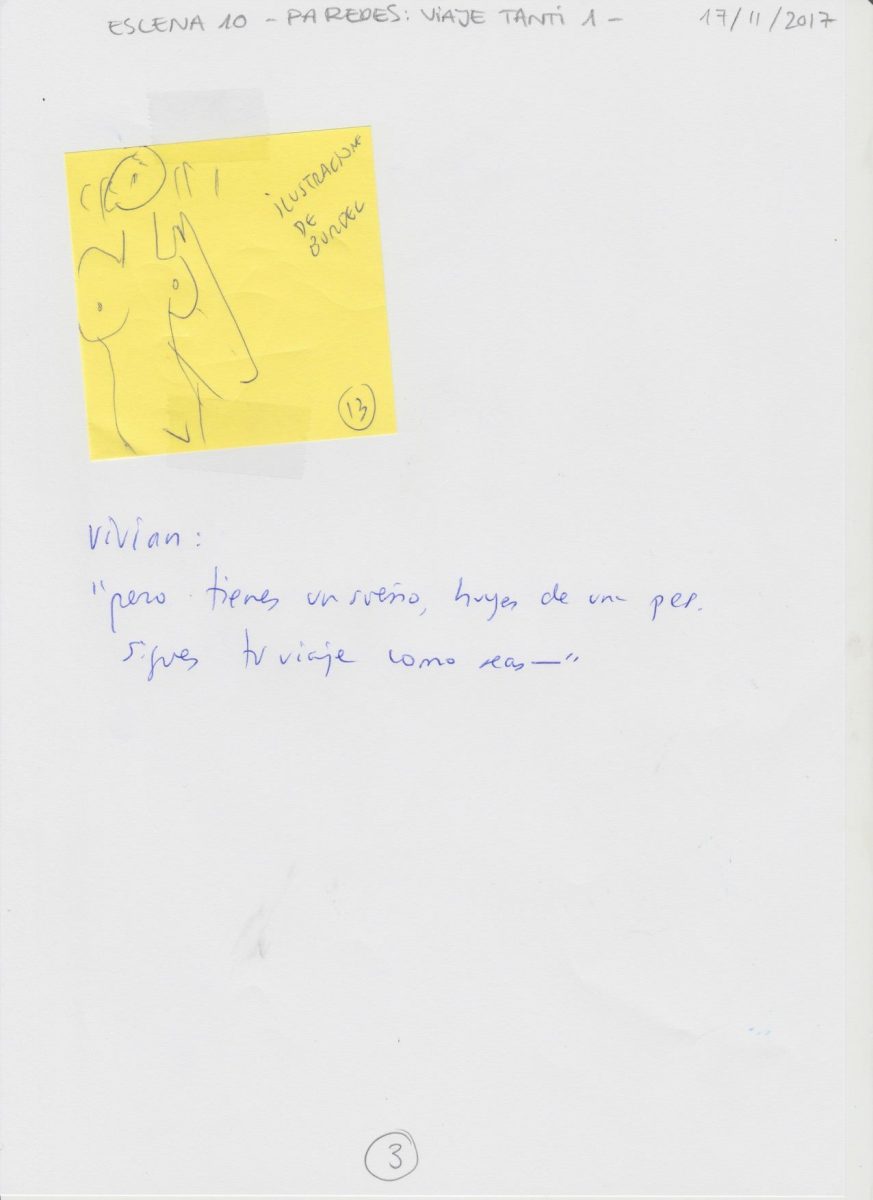 ESCENA 10 - PAREDES: ViAJE TANTi 1 - 17/11/2017
iLUSTRACION
DE
BURDEL
13
Vivian:
"pero tienes un sueño, huyes de una
sigues tu viaje como seas—"
3